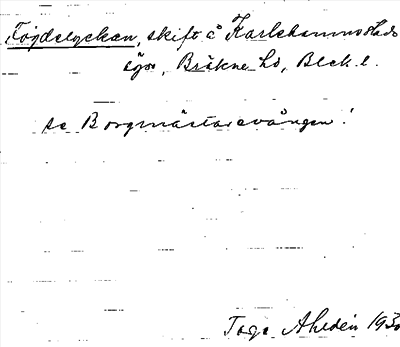 Fögdelyckan, skift å Karlshamns stads
ägor, Bräkne hd, Blek. l.
se Borgmästarevången!
Tage Ahldén 1930